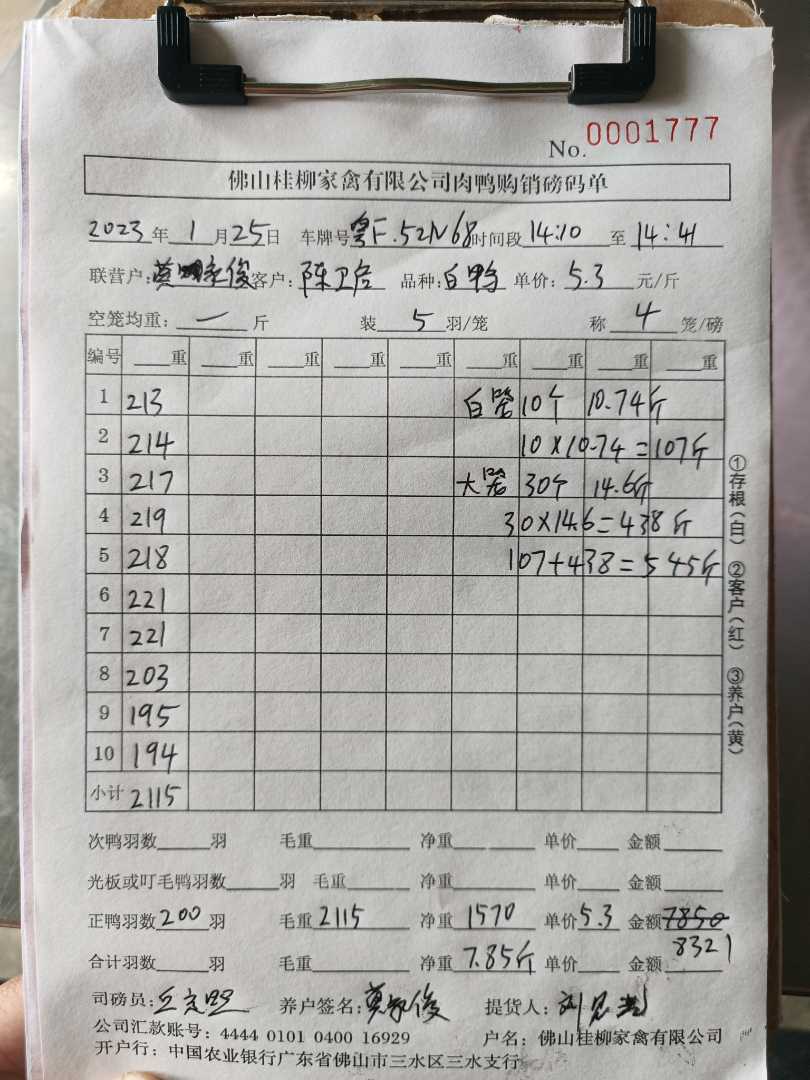 No. 0001777
佛山桂柳家禽有限公司肉鸭购销磅码单
2023年1月25日 车牌号粤F.52N68时间段14:10至14:41
联营户:莫家俊客户:陈卫 品种:白鸭 单价:5.3元/斤
空笼均重:一斤 装5羽/笼 称4笼/磅
编号 重 重 重 重 重 重 重 重 重
1 213 白笼 10个 10.74斤
2 214 10×10.74=107斤
3 217 大笼 30个 14.6斤
4 219 30×14.6=438斤
5 218 107+438=545斤
6 221
7 221
8 203
9 195
10 194
小计 2115
①存根(白) ②客户(红) ③养户(黄)
次鸭羽数 羽 毛重 净重 单价 金额
光板或叮毛鸭羽数 羽 毛重 净重 单价 金额
正鸭羽数200羽 毛重2115 净重1570 单价5.3 金额7850
8321
合计羽数 羽 毛重 净重7.85斤 单价 金额
司磅员: 养户签名:莫家俊 提货人:
公司汇款账号:4444 0101 0400 16929 户名:佛山桂柳家禽有限公司
开户行:中国农业银行广东省佛山市三水区三水支行